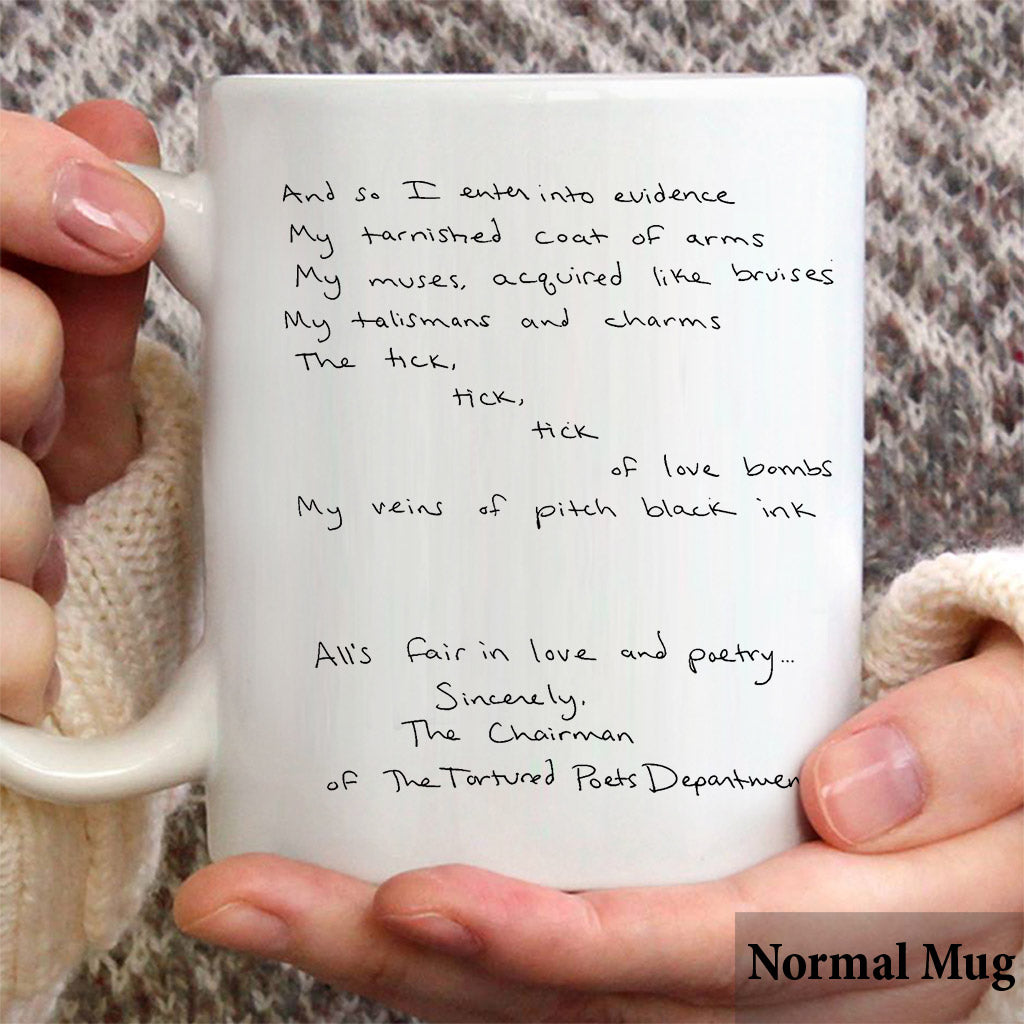 And so I enter into evidence
My tarnished coat of arms
My muses, acquired like bruises
My talismans and charms
The tick,
tick,
tick
of love bombs
My veins of pitch black ink
All's fair in love and poetry...
Sincerely,
The Chairman
of The Tortured Poets Departmen
Normal Mug